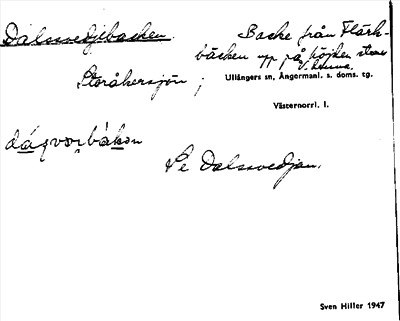 Dalsvedjebacken. Backe från Flärk-
bäcken upp på höjden
Storåkersjön ;
Ullångers sn, Ångermanl. s. doms. tg.
Västernorrl. l.
Se Dalsvedjan.
Sven Hiller 1947